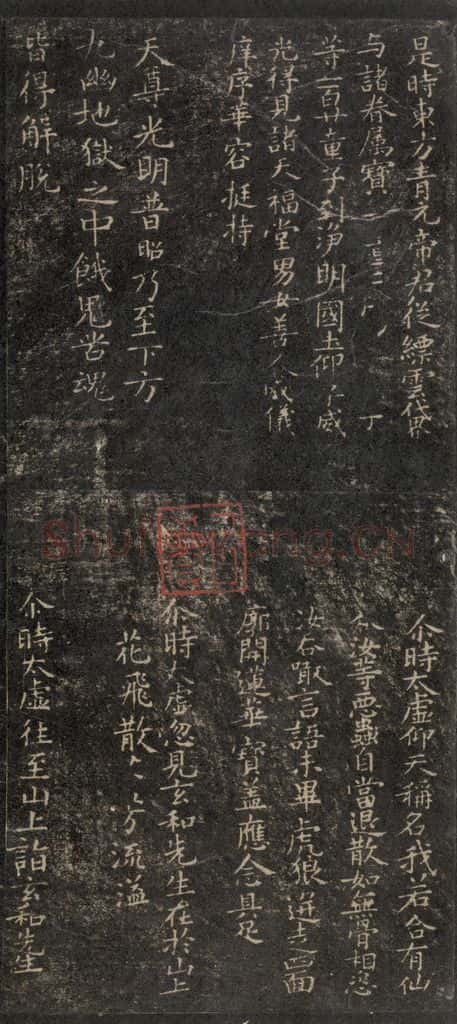 是時東方青元帝君從縹雲世界
与諸眷属寶
等一百廿童子到淨明國土仰
威
光得見諸天福堂男女善人威儀
庠序華容挺持
天尊光明普昭乃至下方
九幽地獄之中餓鬼苦魂
皆得解脱
尒時太虛仰天稱名我若合有仙
汝等悪蟲自當退散如無骨相恣
汝吞噉言語未畢虎狼迸去四面
廓開蓮華寶盖應念具足
尒時太虛忽見玄和先生在於山上
花飛散
流溢
尒時太虛往至山上詣玄和先生